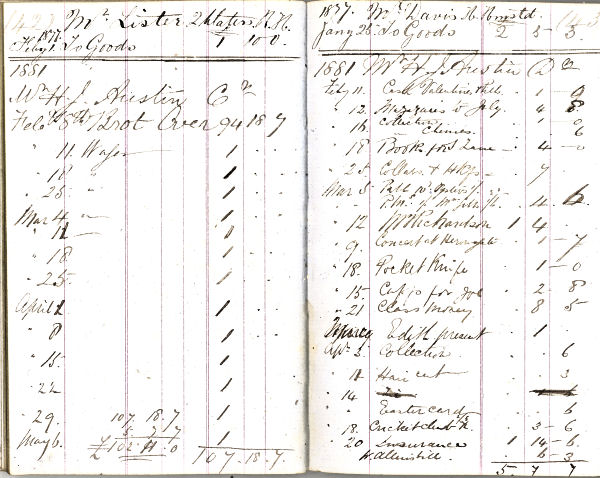 Mr Lister
1877
Feby 1. To Goods 1 10 0
1881
Mr H J Austin Cr
Feby 5th Brot Over 94 18 7
" 11 Wages 1
" 18 " 1
" 25 " 1
Mar 4 " 1
" 11 " 1
" 18 1
" 25 1
April 1 1
" 8 1
" 15. 1
" 22 1
" 29. 107. 18. 7 1
5 7 7
May 6. 102 11 0 1
107. 18. 7.
1877. Mr J Davis
Jany 25 To Goods 2 5.
1881 Mr H. J. Austin Dr
Feb 11. Cash Valentines 1 - 0
" 12. Magazines to July. 4 8
" 16. Collection 1 - 0
6
" 18 Book for 4 - 0
" 25. Collars & 7
Mar 5
4 6
" 12 Mr Richardson 1 4
" 9. Concert at Harrogate 1 - 7
" 18. Pocket Knife 1 - 0
" 15. Cap for Joe 2 - 8
" 21 Class Money 8 5
Edith present 1
Apr 2. Collection 6
" 11 Hair cut 3
" 14
" Easter cards 6
" 18. Cricket club 3 - 6
" 20 Insurance 1 14 - 6
6 - 3
5. 7 7